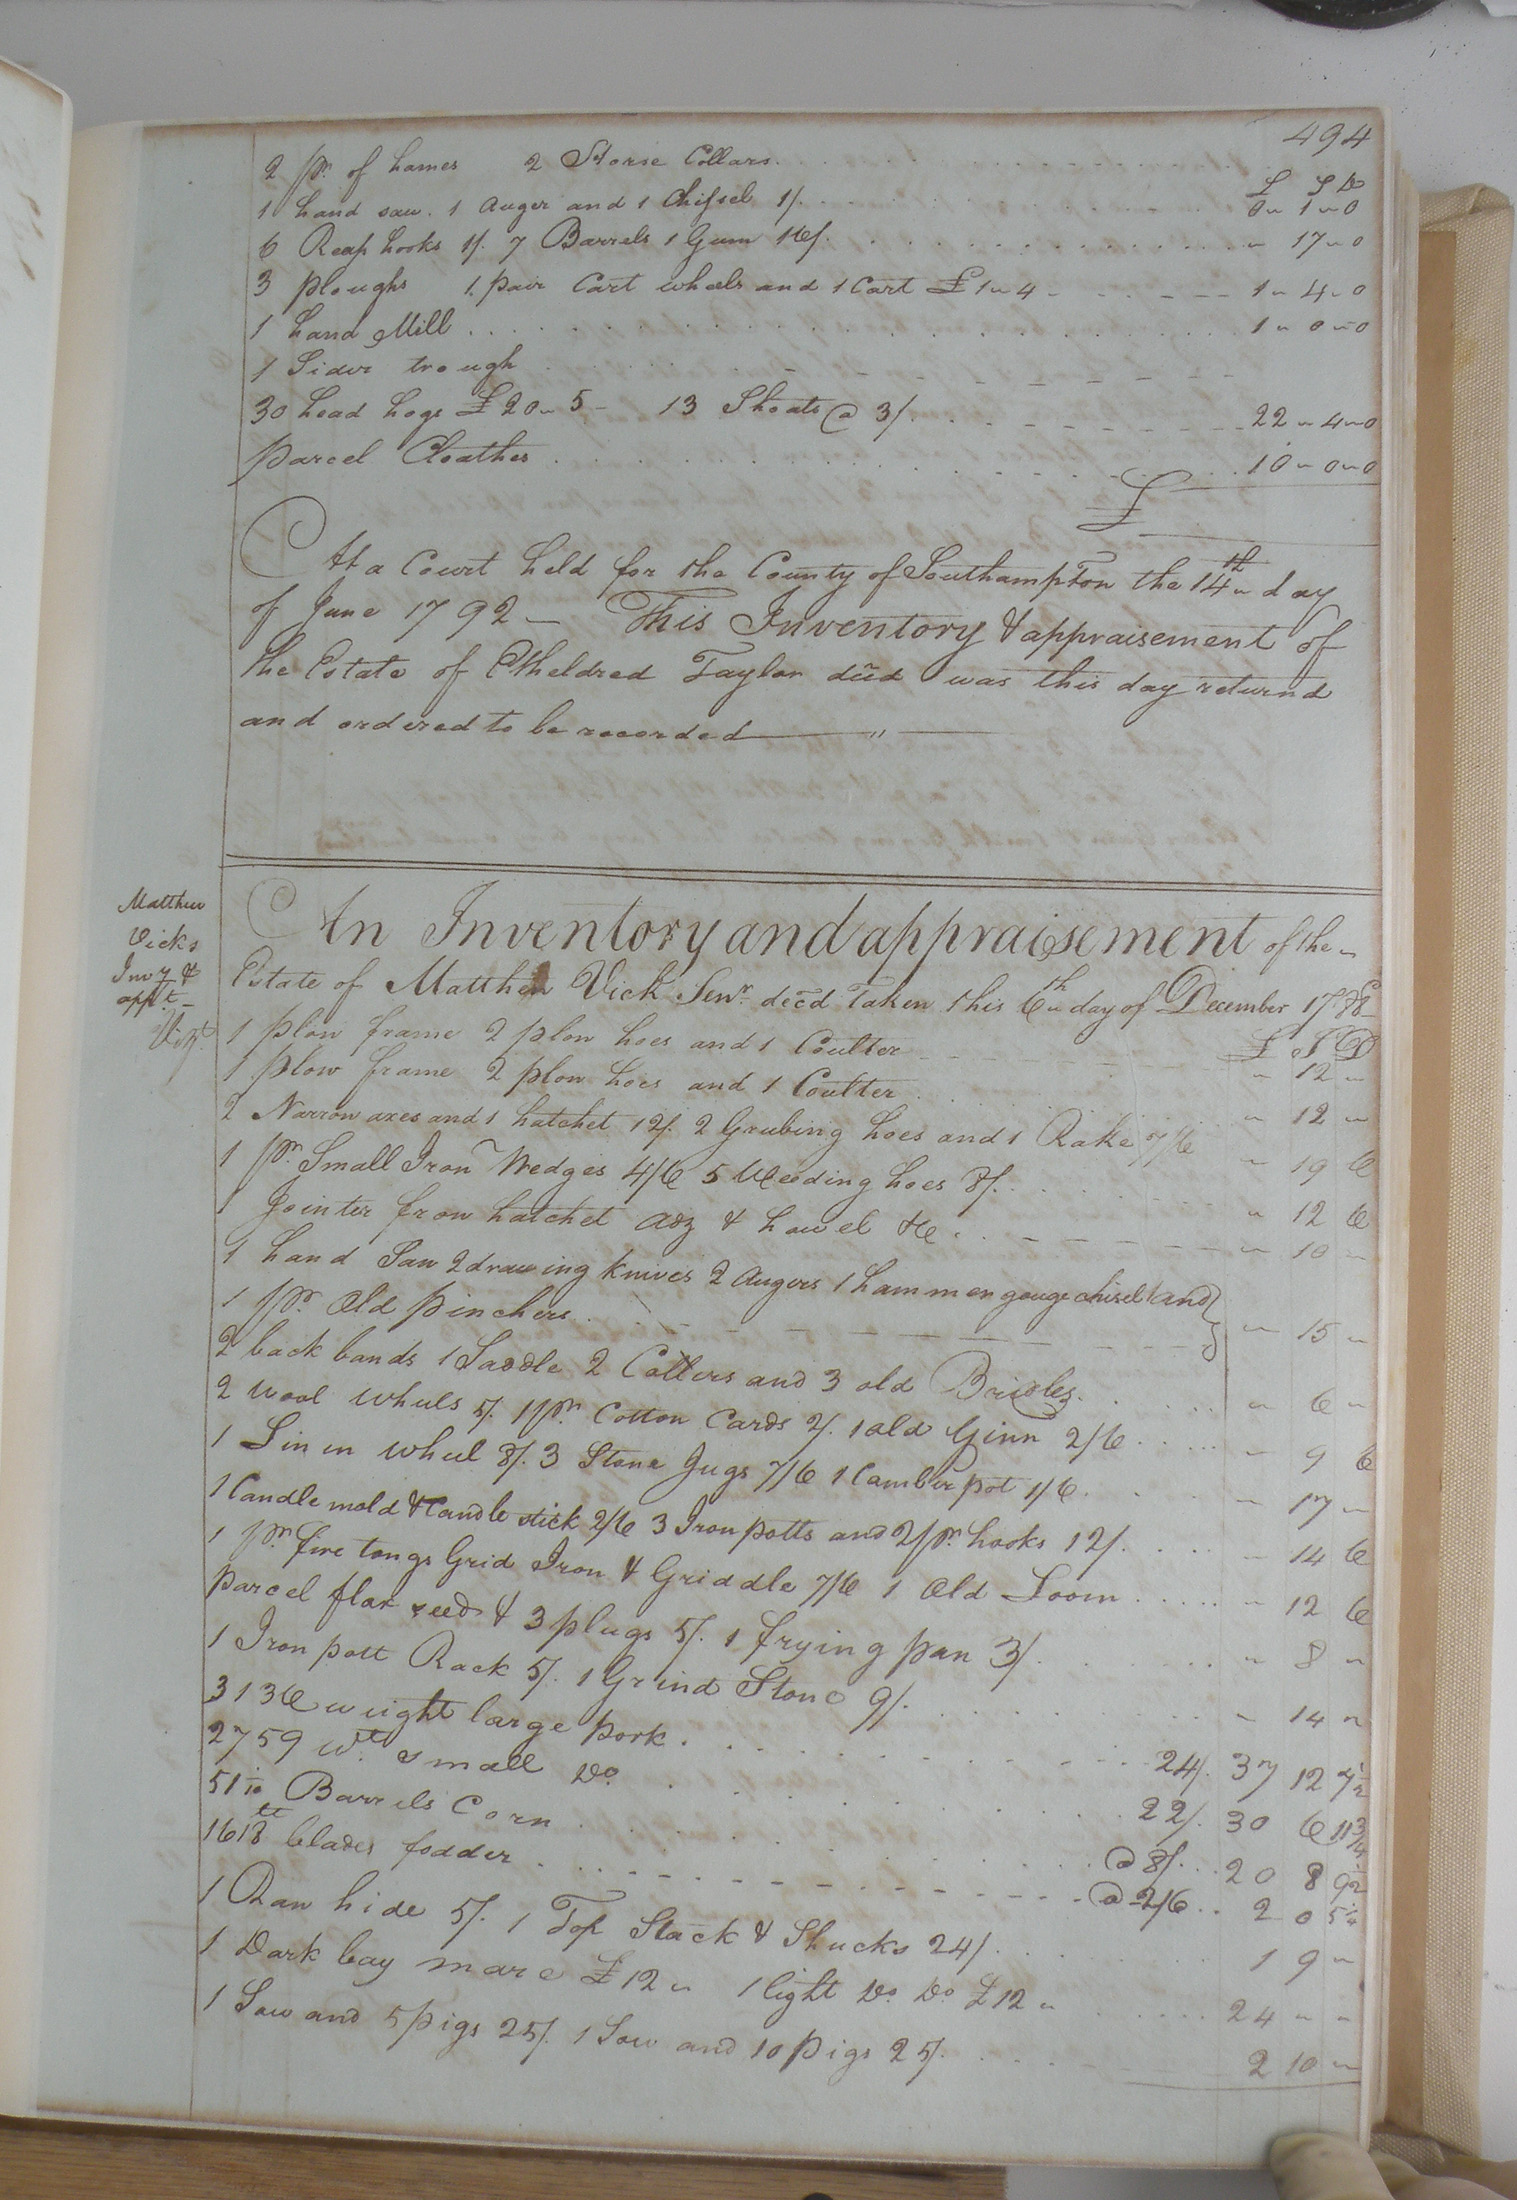 494
2 pr. of hames 2 Horse Collars.
£ S D
1 hand saw. 1 Auger and 1 Chissel 1/. 0 " 1 " 0
6 Reap hooks 1/. 7 Barrels 1 Gum 16/. " 17 " 0
3 ploughs 1. pair Cart wheels and 1 Cart £1 " 4 - 1 " 4 " 0
1 hand Mill 1 " 0 " 0
1 Sider trough
30 head hogs £20 " 5 - 13 Shoats @ 3/. 22 " 4 " 0
parcel Cloathes 10 " 0 " 0
£
At a Court held for the County of Southampton the 14th day
of June 1792 — This Inventory & appraisement of
the Estate of Etheldred Taylor decd was this day returnd
and ordered to be recorded — " —
Matthew
Vicks
Invy &
appt.
An Inventory and appraisement of the
Estate of Matthew Vick Senr. decd Taken this 6th day of December 1788
£ S D
1 plow frame 2 plow hoes and 1 Coulter " 12 "
1 plow frame 2 plow hoes and 1 Coulter " 12 "
2 Narrow axes and 1 hatchet 12/. 2 Grubing hoes and 1 Rake 7/6 " 19 6
1 pr. Small Iron Wedges 4/6 5 Weeding hoes 8/. " 12 6
1 Jointer frow hatchet adz & howel &c " 10 "
1 hand Saw 2 drawing knives 2 Augers 1 hammer gouge chisel and
1 pr. old pinchers " 15 "
2 back bands 1 Saddle 2 Collers and 3 old Bridles " 6 "
2 wool wheels 5/. 1 pr. Cotton Cards 2/. 1 old Ginn 2/6 " 9 6
1 Linen wheel 8/. 3 Stone Jugs 7/6 1 Camber pot 1/6 " 17 "
1 Candle mold & Candle stick 2/6 3 Iron potts and 2 pr. hooks 12/. " 14 6
1 pr. fire tongs Grid Iron & Griddle 7/6 1 old Loom " 12 6
parcel flax seed & 3 plugs 5/. 1 frying pan 3/. " 8 "
1 Iron pott Rack 5/. 1 Grind Stone 9/. " 14 "
3136 weight large pork 24/. 37 12 7½
2759 wt. small Do. 22/. 30 6 11¾
51 1/10 Barrels Corn @ 8/. 20 8 9½
1618 lb blades fodder @ 2/6 2 0 5¼
1 Raw hide 5/. 1 Top Stack & Shucks 24/. 1 9 "
1 Dark bay mare £12 " 1 light Do. Do. £12 " 24 " "
1 Sow and 5 pigs 25/. 1 Sow and 10 pigs 25/. 2 10 "